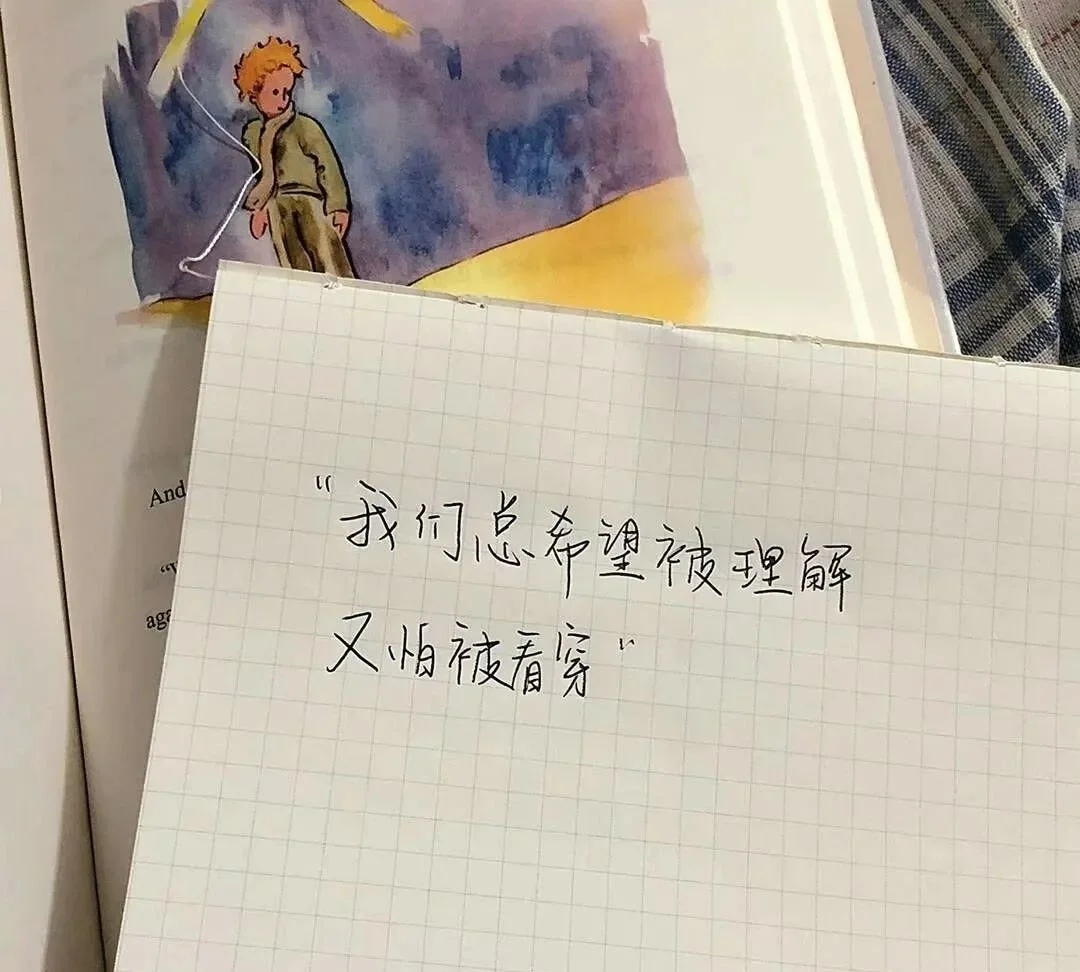 And
"
aga
“我们总希望被理解
又怕被看穿”